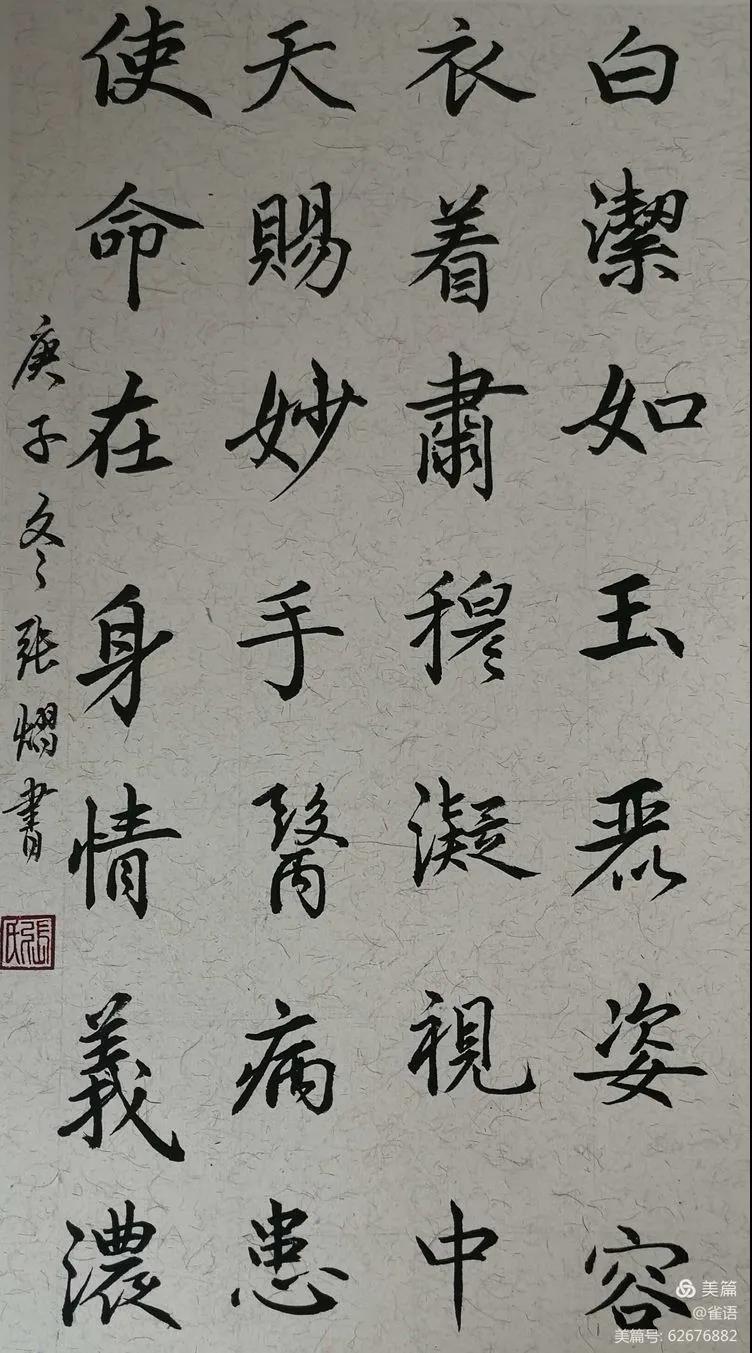 白潔如玉麗姿容
衣着肅穆凝視中
天賜妙手醫病患
使命在身情義濃
庚子冬張熠書
張氏
美篇
@雀语
美篇号: 62676882